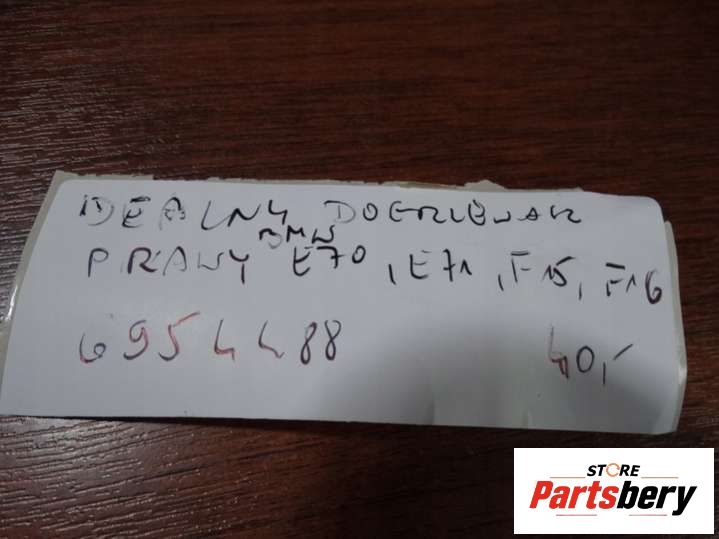 IDEALNY DOGRZEWACZ
BMW
PRAWY E70, E71, F15, F16
6954488 40,-
STORE
Partsbery